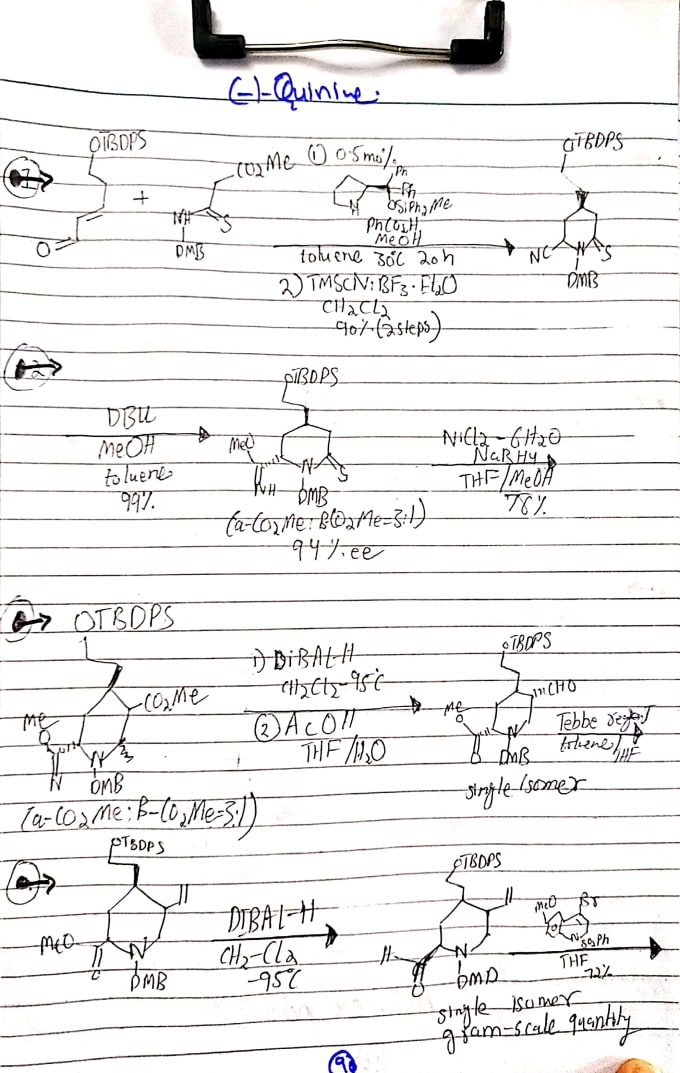 (-)-Quinine.
1
OTBDPS
CO2Me
+
O
NH
S
DMB
① 0.5 mol%
Ph
Ph
N
H
OSiPh2Me
PhCO2H
MeOH
toluene 30°C 20h
2) TMSCN: BF3·Et2O
CH2Cl2
90% (2 steps)
OTBDPS
NC
N
S
DMB
2
DBU
MeOH
toluene
99%
OTBDPS
MeO
NH
N
S
DMB
(a-CO2Me: BCO2Me=3:1)
94% ee
NiCl2-6H2O
NaBH4
THF/MeOH
78%
OTBDPS
CO2Me
Me
O
N
N
DMB
(a-CO2Me: B-CO2Me=3:1)
1) DiBAL-H
CH2Cl2 -95°C
② AcOH
THF/H2O
OTBDPS
CHO
Me
O
O
N
DMB
single isomer
Tebbe
toluene/THF
OTBDPS
MeO
O
N
DMB
DIBAL-H
CH2-Cl2
-95°C
OTBDPS
H
O
N
DMD
single isomer
gram-scale quantity
MeO
Br
N
SO2Ph
THF
72%